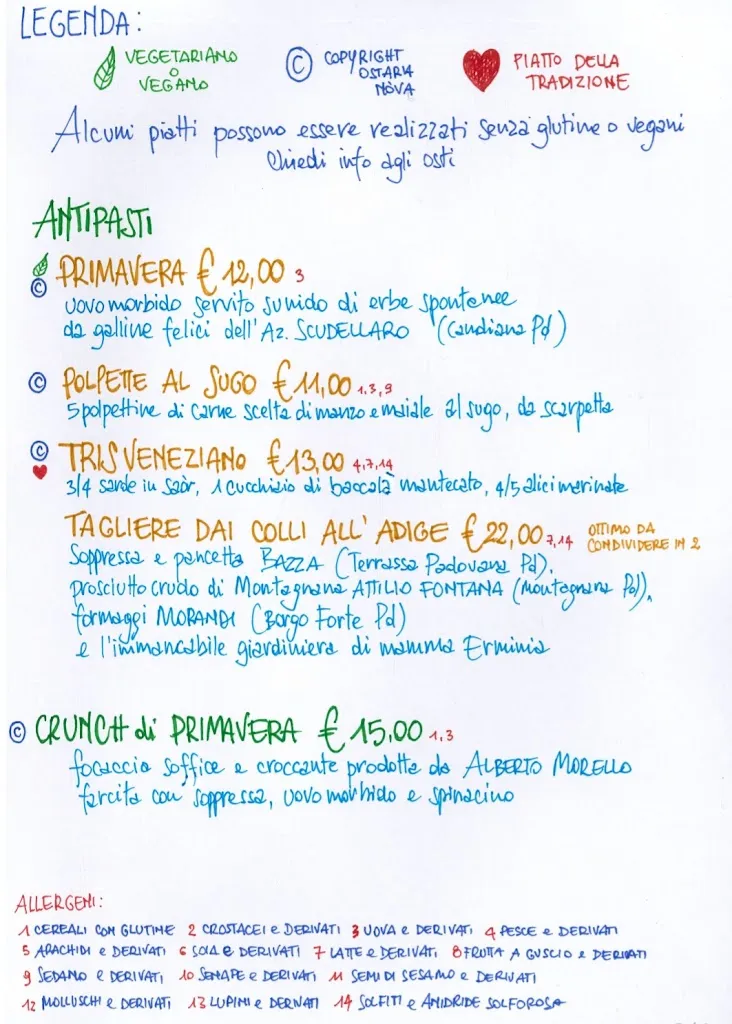 LEGENDA:
VEGETARIANO
O
VEGANO
© COPYRIGHT
OSTARIA
NOVA
PIATTO DELLA
TRADIZIONE
Alcuni piatti possono essere realizzati senza glutine o vegani
Chiedi info agli osti
ANTIPASTI
© PRIMAVERA € 12,00 3
uovo morbido servito su nido di erbe spontanee
da galline felici dell'Az. SCUDELLARO (Candiana Pd)
© POLPETTE AL SUGO € 11,00 1,3,9
5 polpettine di carne scelta di manzo e maiale al sugo, da scarpetta
© TRIS VENEZIANO € 13,00 4,7,14
3/4 sarde in saòr, 1 cucchiaio di baccalà mantecato, 4/5 alici marinate
TAGLIERE DAI COLLI ALL'ADIGE € 22,00 7,14 OTTIMO DA
CONDIVIDERE IN 2
Soppressa e pancetta BAZZA (Terrassa Padovana Pd),
prosciutto crudo di Montagnana ATTILIO FONTANA (Montagnana Pd),
formaggi MORANDI (Borgo Forte Pd)
e l'immancabile giardiniera di mamma Erminia
© CRUNCH di PRIMAVERA € 15,00 1,3
focaccia soffice e croccante prodotta da ALBERTO MORELLO
farcita con soppressa, uovo morbido e spinacino
ALLERGENI:
1 CEREALI CON GLUTINE 2 CROSTACEI e DERIVATI 3 UOVA e DERIVATI 4 PESCE e DERIVATI
5 ARACHIDI e DERIVATI 6 SOIA e DERIVATI 7 LATTE e DERIVATI 8 FRUTTA A GUSCIO e DERIVATI
9 SEDANO e DERIVATI 10 SENAPE e DERIVATI 11 SEMI DI SESAMO e DERIVATI
12 MOLLUSCHI e DERIVATI 13 LUPINI e DERIVATI 14 SOLFITI e ANIDRIDE SOLFOROSA